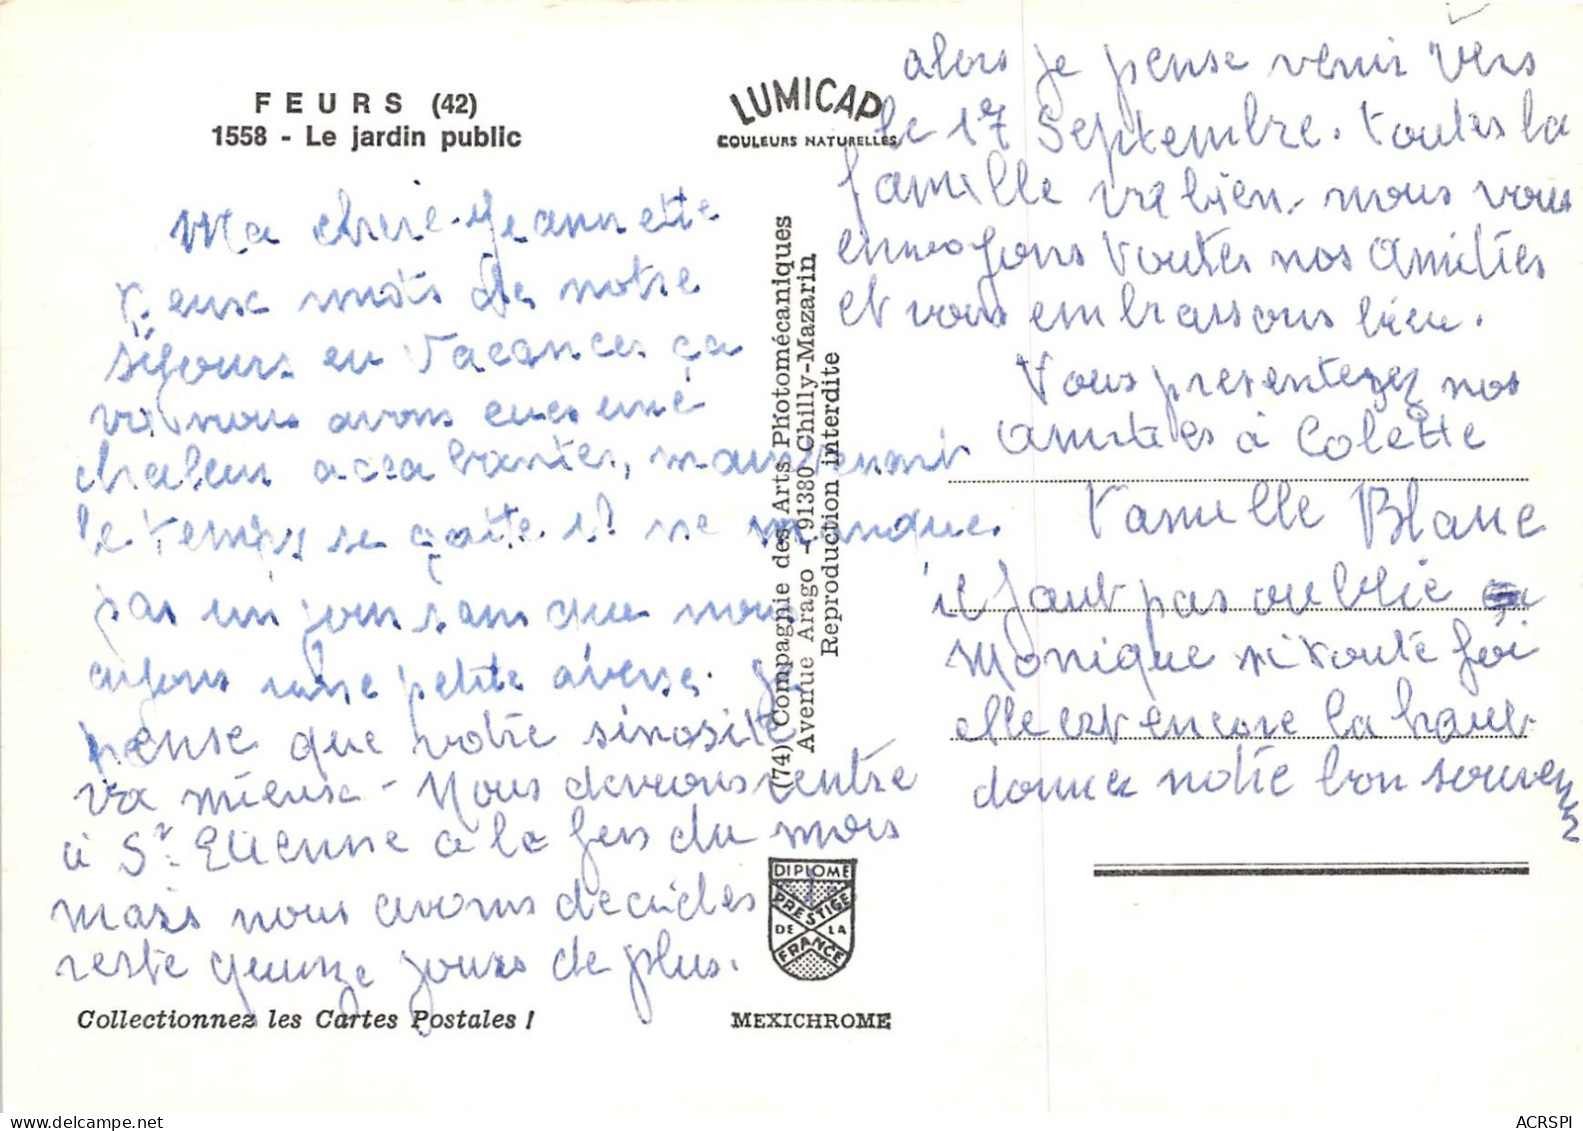 FEURS (42)
1558 - Le jardin public
LUMICAP
COULEURS NATURELLES
Ma cherie Jeannette
deux mots de notre
séjours en Vacances ça
va nous avons eues une
chaleur accablantes, maintenant
le temps se gatte il ne manque
pas un jour sans que nous
ayons une petite averse. Je
pense que votre sinosite
va mieux - Nous devrons rentre
à St. Etienne a la fen du mois
mais nous avons decides
reste quinze jours de plus.
Collectionnez les Cartes Postales !
(74) Compagnie des Arts Photomécaniques
Avenue Arago - 91380 Chilly-Mazarin
Reproduction interdite
DIPLOME
PRESTIGE
DE LA
FRANCE
MEXICHROME
alors je pense venir vers
le 17 Septembre. toutes la
famille va bien. nous vous
envoyons toutes nos amitiés
et vous embrassons bien.
Vous presenterez nos
amities à Colette
Famille Blanc
il faut pas oublie
Monique si toute foi
elle est encore la haut
donnez notre bon souvenir
ACRSPI